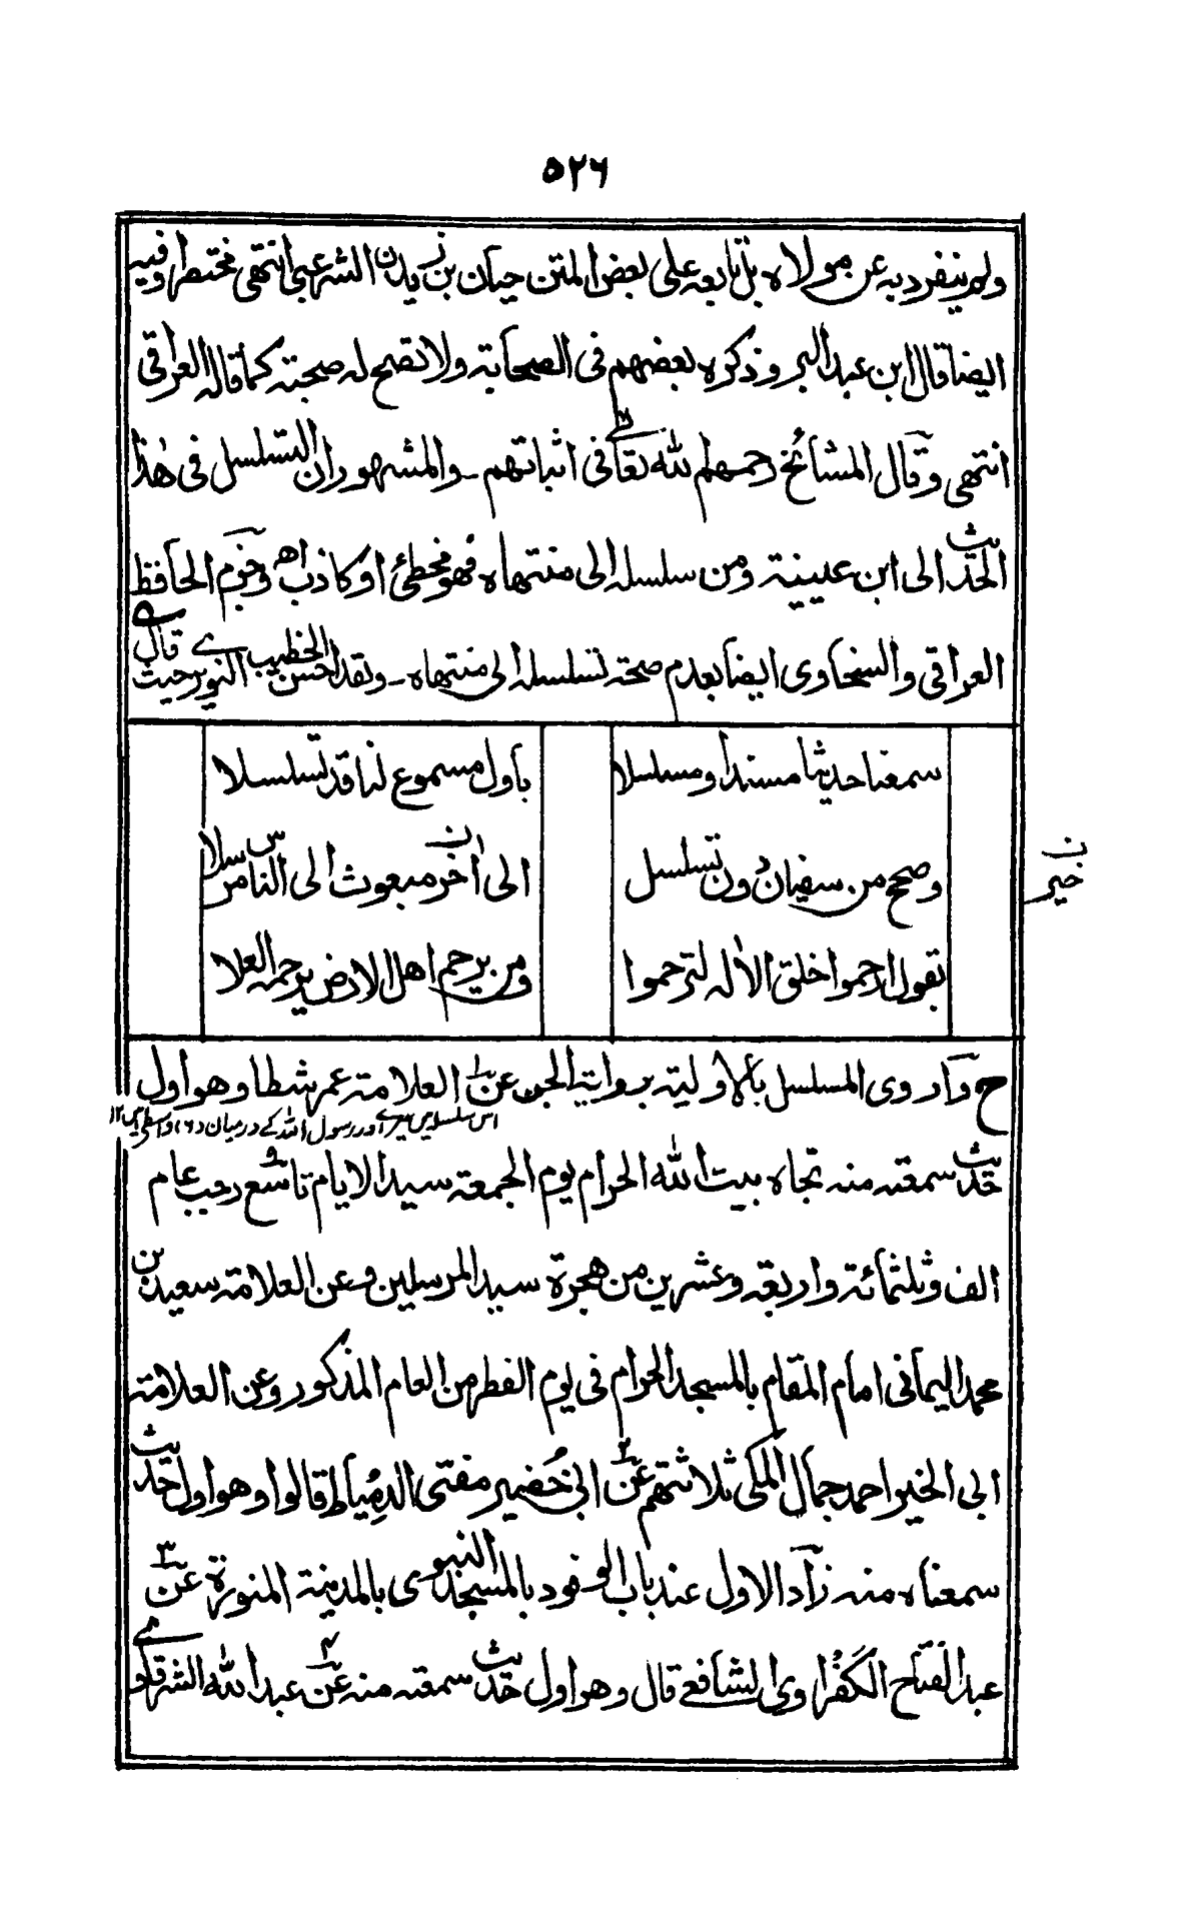 ۵۲۶
ولم ينفرد به عن مولاه بل تابعه على بعض المتن حيان بن زيد ن الشرعبي انتهى مختصرا وفيه
ايضا قال ابن عبد البر وذكره بعضهم فى الصحابة ولا تصح له صحبته كما قاله العراقى
انتهى وقال المشائخ رحمهم الله تعالى فى اثباتهم - والمشهور ان التسلسل فى هٰذا
الحديث الى ابن عيينة ومن سلسله الى منتهاه فهو مخطئ او كاذب اھ وجزم الحافظ
العراقى والسخاوى ايضا بعدم صحة تسلسله الى منتهاه - ولقد احسن الخطيب النويرى حيث قال
سمعنا حديثا مسندا ومسلسلا باول مسموع لنا قد تسلسلا
وصح من سفيان دون تسلسل الى اٰخر مبعوث الى الناس مرسلا
ن
خير
يقول ارحموا خلق الاله لترحموا ومن يرحم اهل الارض يرحمه العلا
ح وارروى المسلسل بالاولية برواية الجن عن ۱ العلامة عمر شطا وهو اول
اس سلسلہ میں میرے اور رسول اللہ کے درمیان (۶) واسطے ہیں ۱۲
حديث سمعته منه تجاه بيت الله الحرام يوم الجمعة سيد الايام تاسع رجب عام
الف وثلثمائة واربعة وعشرين من هجرة سيد المرسلين وعن العلامة سعيد بن
محمد اليمانى امام المقام بالمسجد الحرام فى يوم الفطر من العام المذكور وعن العلامة
ابى الخير احمد جمال المكى ثلاثتهم عن ۲ ابى خُضير مفتى الدِمياط قالوا وهو اول حديث
سمعناه منه زاد الاول عند باب الوفود بالمسجد النبوى بالمدينة المنورة عن ۳
عبد الفتاح الكَفْراوى الشافعى قال وهو اول حديث سمعته منه عن ۴ عبد الله الشرقاوى